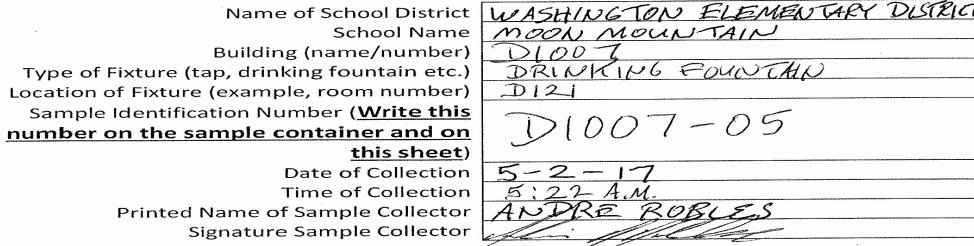 Name of School District WASHINGTON ELEMENTARY DISTRICT
School Name MOON MOUNTAIN
Building (name/number) D1007
Type of Fixture (tap, drinking fountain etc.) DRINKING FOUNTAIN
Location of Fixture (example, room number) D121
Sample Identification Number (Write this
number on the sample container and on D1007-05
this sheet)
Date of Collection 5-2-17
Time of Collection 5:22 A.M.
Printed Name of Sample Collector ANDRE ROBLES
Signature Sample Collector